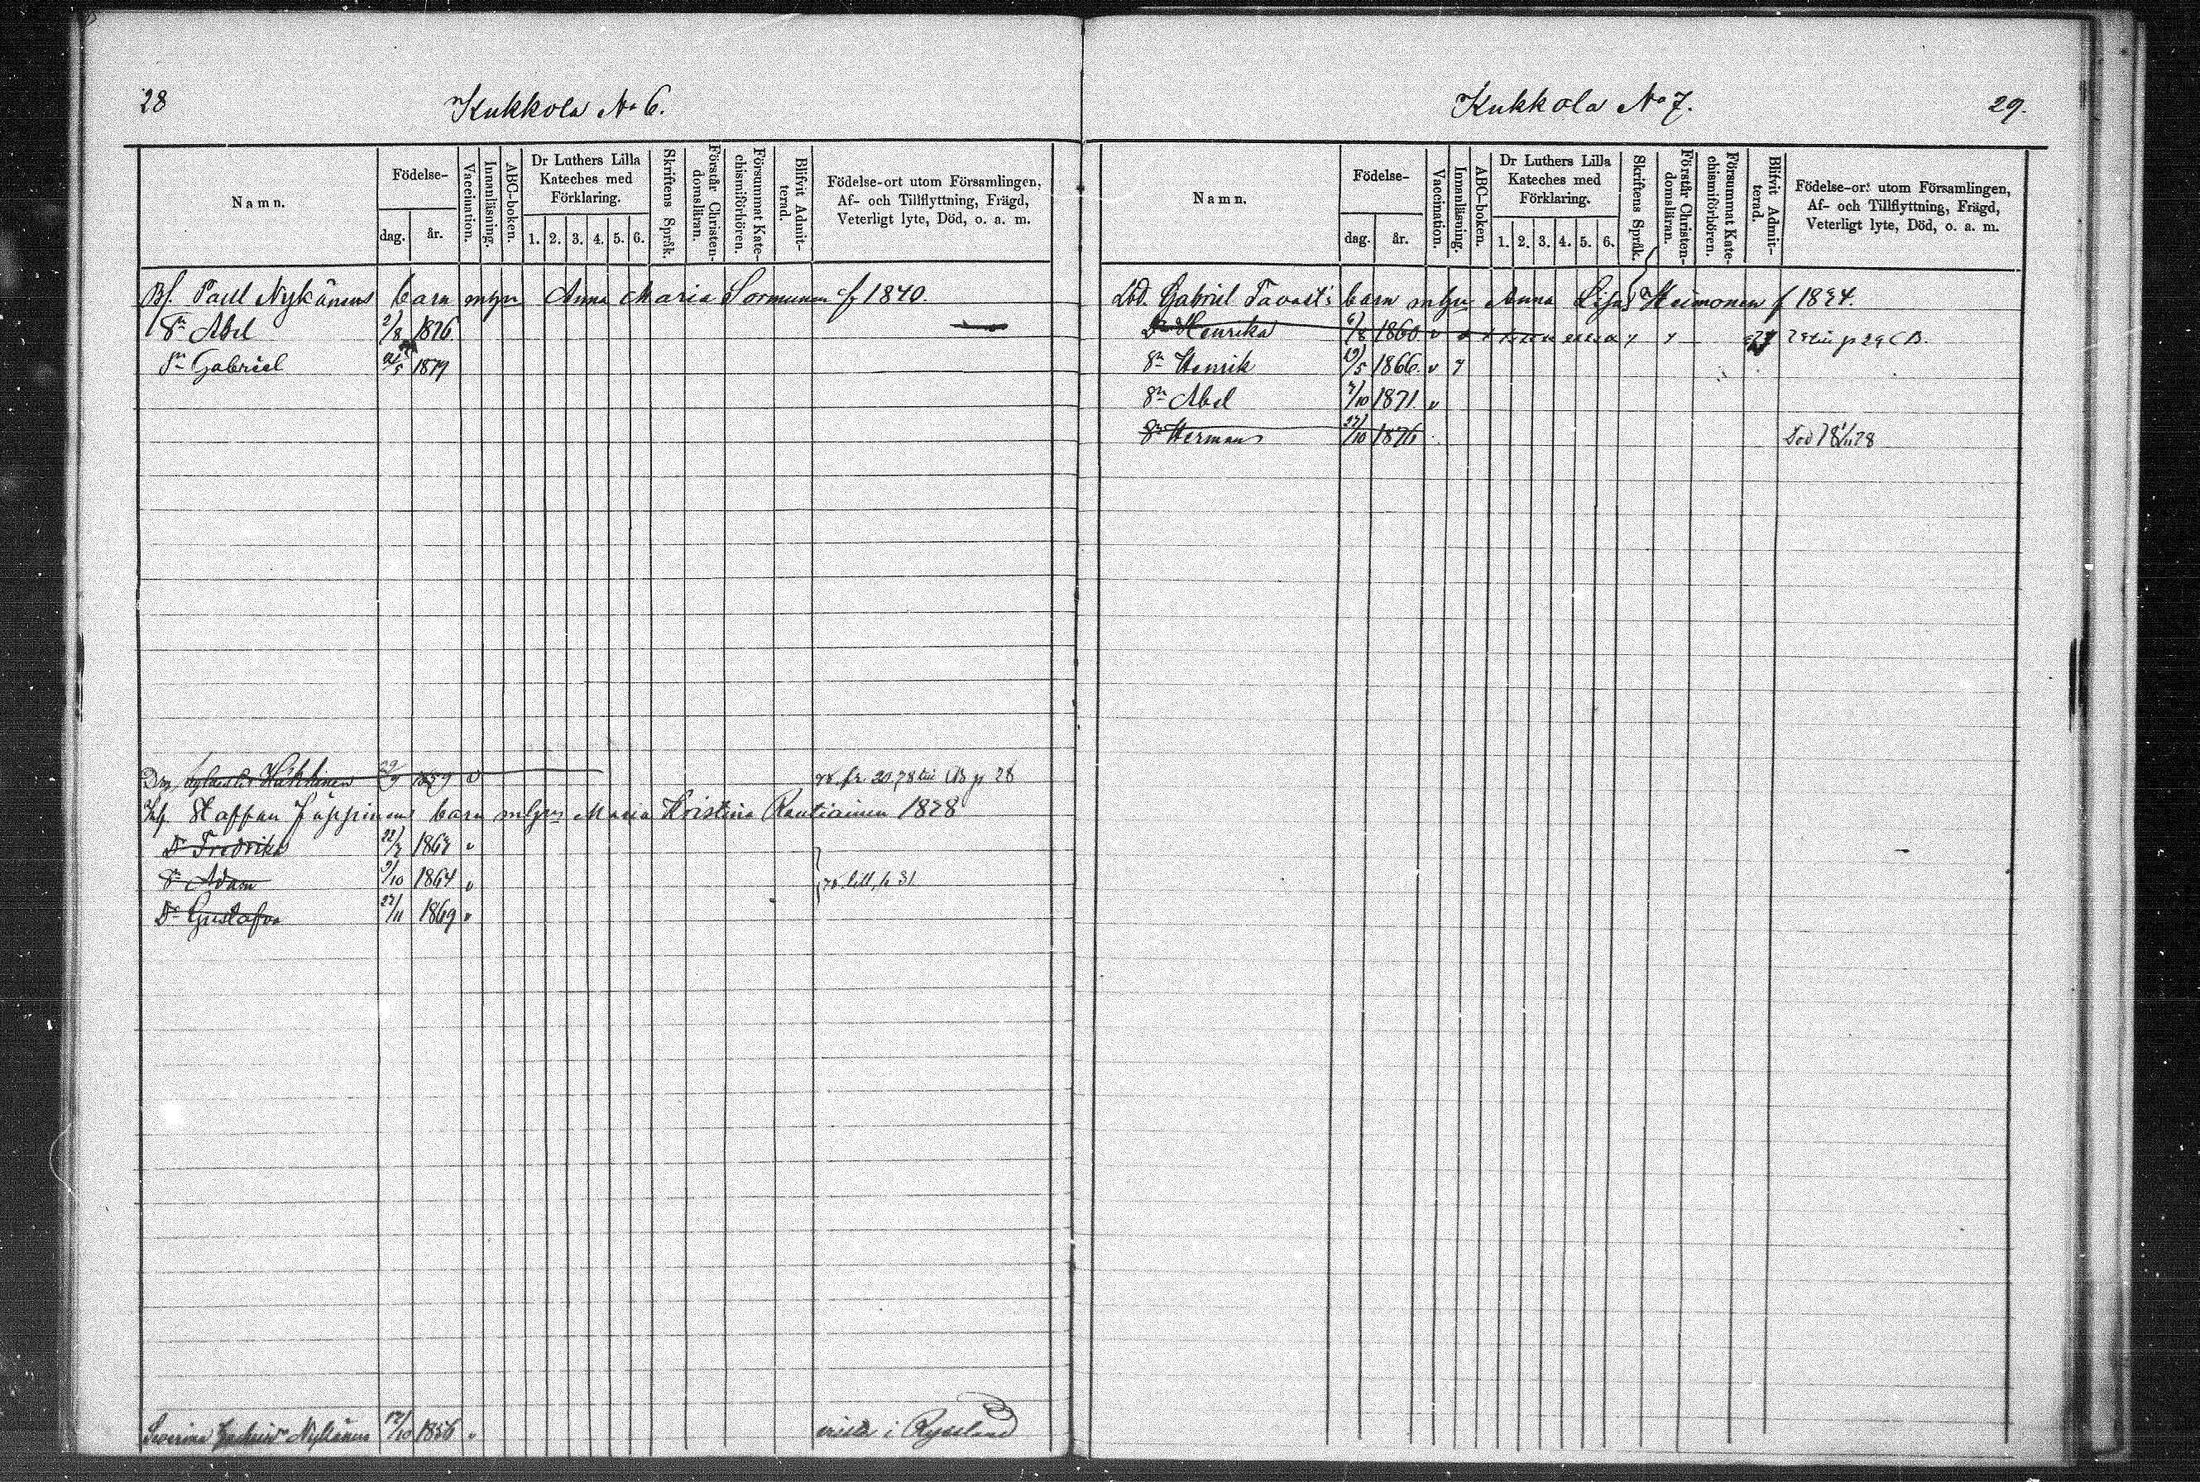 28
Kukkola No 6.
Namn.
Födelse-
dag.
år.
Vaccination.
Innanläsning.
ABC-boken.
Dr Luthers Lilla
Kateches med
Förklaring.
1. 2. 3. 4. 5. 6.
Skriftens Språk.
Förstår Christen-
domsläran.
Försummat Kate-
chismiförhören.
Blifvit Admit-
terad.
Födelse-ort utom Församlingen,
Af- och Tillflyttning, Frägd,
Veterligt lyte, Död, o. a. m.
Bf. Paul Nykänens barn m Anna Maria Sormunen f 1840.
Sn Abel 2/8 1876.
Sn Gabriel /5 1879
Häkkinen 29/ 1859 v 28
Staffan Jäppinens barn Maria Kristina Rautiainen 1828
Dr Fredrika 22/ 186 v
Sn Adam 9/10 1864 v p 31
Dr Gustafva 27/11 1869 v
Severina Nykänen /10 1856 v vistas i Ryssland
Kukkola No 7.
29.
Namn.
Födelse-
dag.
år.
Vaccination.
Innanläsning.
ABC-boken.
Dr Luthers Lilla
Kateches med
Förklaring.
1. 2. 3. 4. 5. 6.
Skriftens Språk.
Förstår Christen-
domsläran.
Försummat Kate-
chismiförhören.
Blifvit Admit-
terad.
Födelse-ort utom Församlingen,
Af- och Tillflyttning, Frägd,
Veterligt lyte, Död, o. a. m.
Lbd. Gabriel Tavast's barn m Anna Lisa Heimonen f 1824.
Dr Henrika 6/8 1860 v p 29 CB.
Sn Henrik 19/5 1866. v
Sn Abel 7/10 1871. v
Sn Herman 27/10 1876 Död 18 /11 78